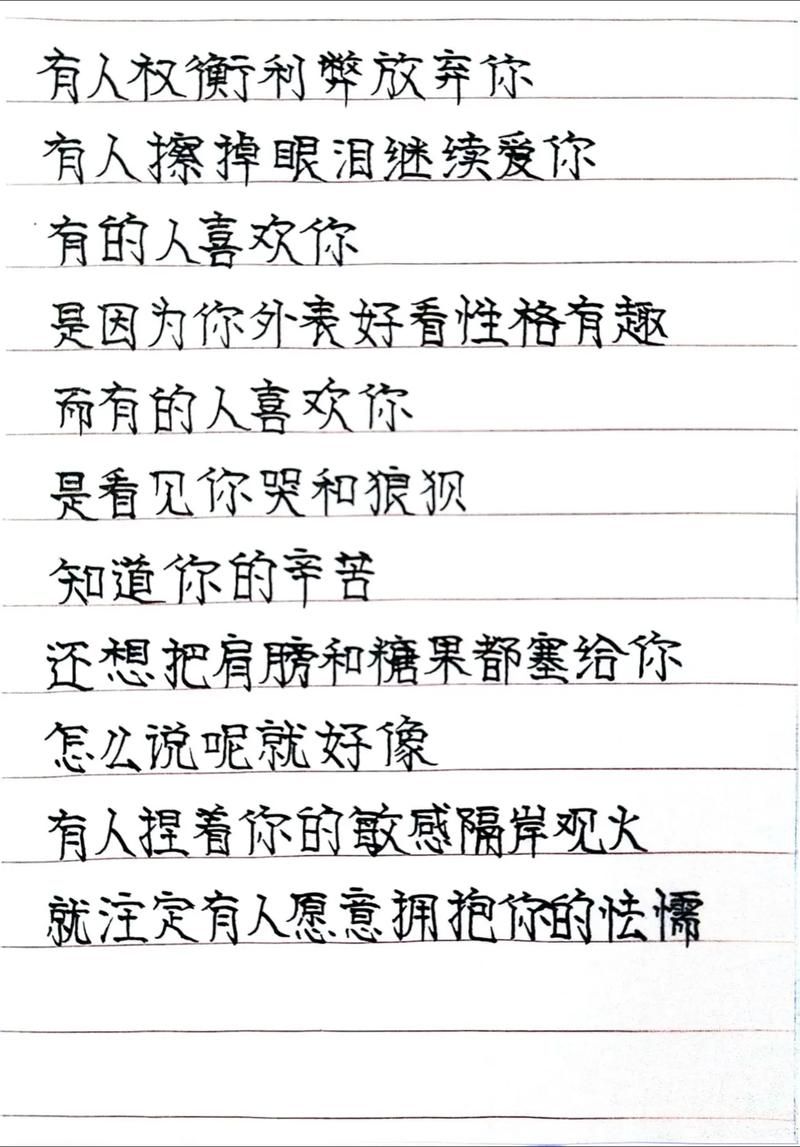 有人权衡利弊放弃你
有人擦掉眼泪继续爱你
有的人喜欢你
是因为你外表好看性格有趣
而有的人喜欢你
是看见你哭和狼狈
知道你的辛苦
还想把肩膀和糖果都塞给你
怎么说呢就好像
有人捏着你的敏感隔岸观火
就注定有人愿意拥抱你的怯懦